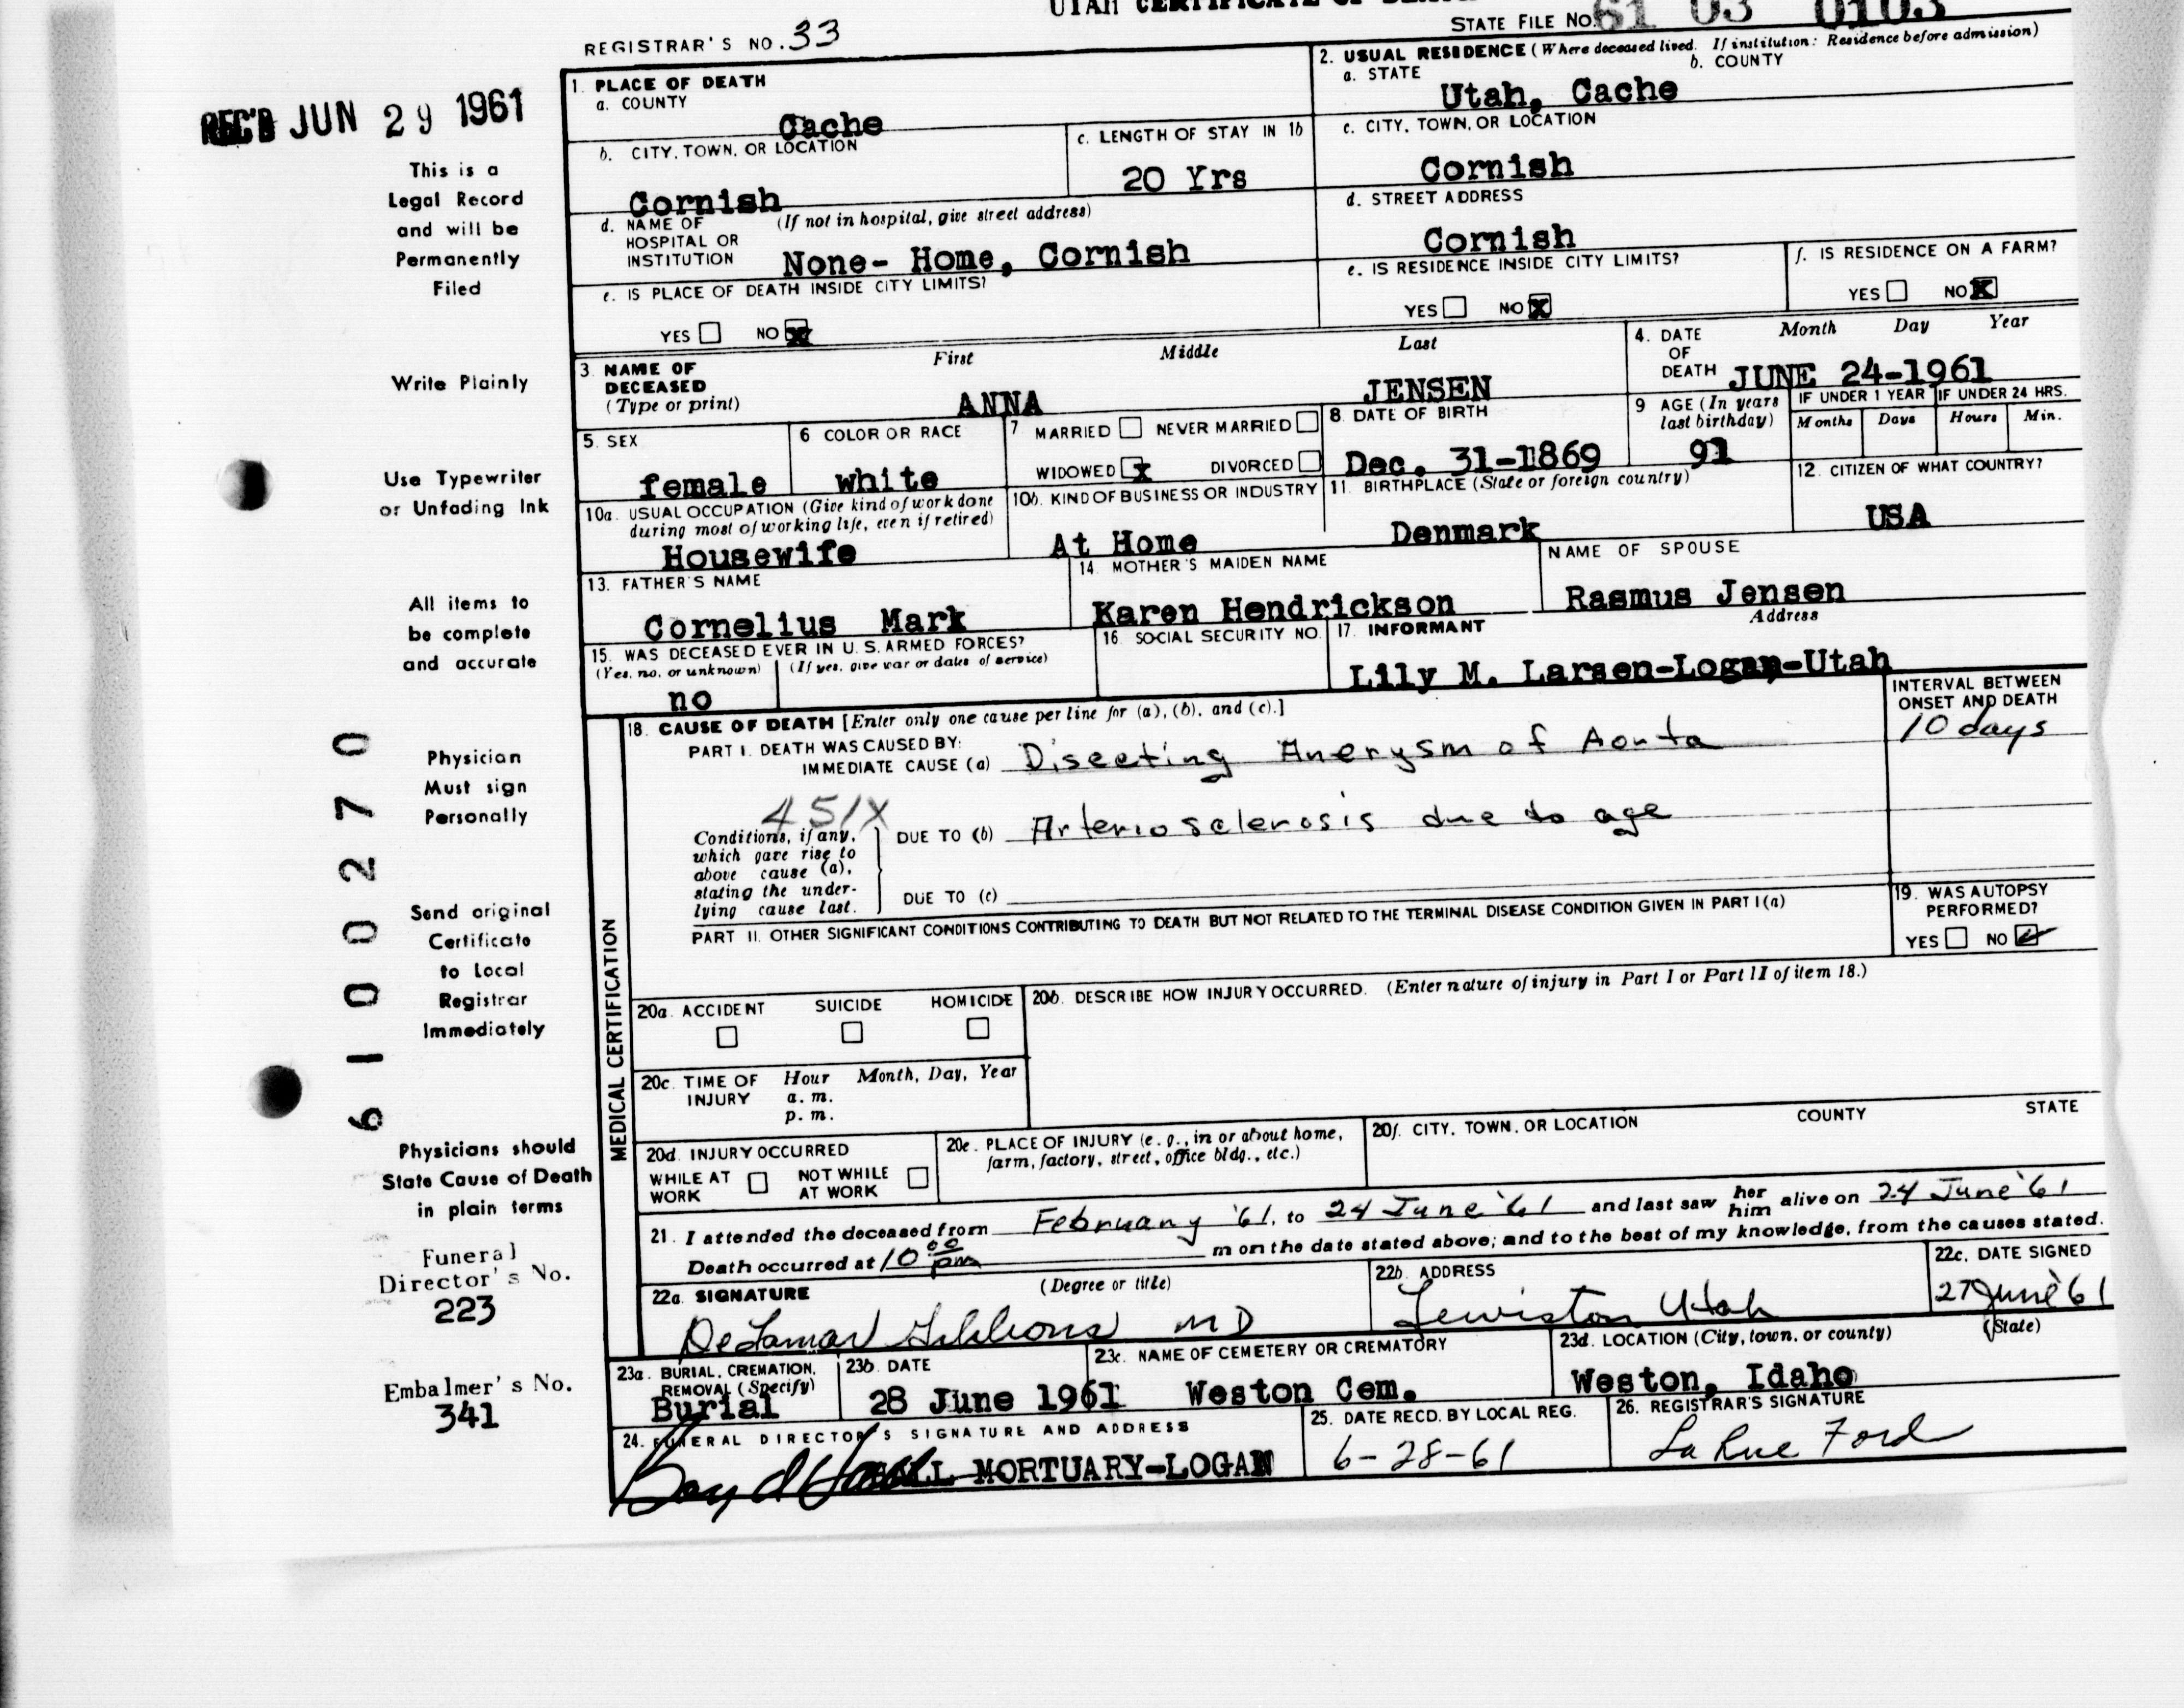 UTAH CERTIFICATE OF DEATH
STATE FILE NO. 61 03 0103
REGISTRAR'S NO. 33
REC'D JUN 29 1961
This is a
Legal Record
and will be
Permanently
Filed
Write Plainly
Use Typewriter
or Unfading Ink
All items to
be complete
and accurate
Physician
Must sign
Personally
Send original
Certificate
to Local
Registrar
Immediately
Physicians should
State Cause of Death
in plain terms
Funeral
Director's No.
223
Embalmer's No.
341
6100270
1. PLACE OF DEATH
a. COUNTY
Cache
b. CITY, TOWN, OR LOCATION
Cornish
c. LENGTH OF STAY IN 1b
20 Yrs
d. NAME OF HOSPITAL OR INSTITUTION (If not in hospital, give street address)
None- Home, Cornish
e. IS PLACE OF DEATH INSIDE CITY LIMITS?
YES NO X
2. USUAL RESIDENCE (Where deceased lived. If institution: Residence before admission)
a. STATE b. COUNTY
Utah, Cache
c. CITY, TOWN, OR LOCATION
Cornish
d. STREET ADDRESS
Cornish
e. IS RESIDENCE INSIDE CITY LIMITS?
YES NO X
f. IS RESIDENCE ON A FARM?
YES NO X
3. NAME OF DECEASED (Type or print)
First Middle Last
ANNA JENSEN
4. DATE OF DEATH Month Day Year
JUNE 24-1961
5. SEX
female
6 COLOR OR RACE
white
7 MARRIED NEVER MARRIED
WIDOWED X DIVORCED
8. DATE OF BIRTH
Dec. 31-1869
9 AGE (In years last birthday)
91
IF UNDER 1 YEAR IF UNDER 24 HRS.
Months Days Hours Min.
10a. USUAL OCCUPATION (Give kind of work done during most of working life, even if retired)
Housewife
10b. KIND OF BUSINESS OR INDUSTRY
At Home
11. BIRTHPLACE (State or foreign country)
Denmark
12. CITIZEN OF WHAT COUNTRY?
USA
13. FATHER'S NAME
Cornelius Mark
14. MOTHER'S MAIDEN NAME
Karen Hendrickson
NAME OF SPOUSE
Rasmus Jensen
15. WAS DECEASED EVER IN U.S. ARMED FORCES?
(Yes, no, or unknown) (If yes, give war or dates of service)
no
16. SOCIAL SECURITY NO.
17. INFORMANT Address
Lily M. Larsen-Logan-Utah
MEDICAL CERTIFICATION
18. CAUSE OF DEATH [Enter only one cause per line for (a), (b), and (c).]
INTERVAL BETWEEN ONSET AND DEATH
PART I. DEATH WAS CAUSED BY:
IMMEDIATE CAUSE (a) Disecting Anerysm of Aorta
10 days
451X
Conditions, if any, which gave rise to above cause (a), stating the underlying cause last.
DUE TO (b) Arteriosclerosis due to age
DUE TO (c)
PART II. OTHER SIGNIFICANT CONDITIONS CONTRIBUTING TO DEATH BUT NOT RELATED TO THE TERMINAL DISEASE CONDITION GIVEN IN PART I(a)
19. WAS AUTOPSY PERFORMED?
YES NO ✓
20a. ACCIDENT SUICIDE HOMICIDE
20b. DESCRIBE HOW INJURY OCCURRED. (Enter nature of injury in Part I or Part II of item 18.)
20c. TIME OF INJURY Hour Month, Day, Year
a. m.
p. m.
20d. INJURY OCCURRED
WHILE AT WORK NOT WHILE AT WORK
20e. PLACE OF INJURY (e. g., in or about home, farm, factory, street, office bldg., etc.)
20f. CITY, TOWN, OR LOCATION COUNTY STATE
21. I attended the deceased from February '61, to 24 June '61 and last saw her him alive on 24 June '61
Death occurred at 10 00 pm m on the date stated above; and to the best of my knowledge, from the causes stated.
22a. SIGNATURE (Degree or title)
DeLamar Gibbons MD
22b. ADDRESS
Lewiston Utah
22c. DATE SIGNED
27 June '61
23a. BURIAL, CREMATION, REMOVAL (Specify)
Burial
23b. DATE
28 June 1961
23c. NAME OF CEMETERY OR CREMATORY
Weston Cem.
23d. LOCATION (City, town, or county) (State)
Weston, Idaho
24. FUNERAL DIRECTOR'S SIGNATURE AND ADDRESS
Boyd Hall HALL MORTUARY-LOGAN
25. DATE RECD. BY LOCAL REG.
6-28-61
26. REGISTRAR'S SIGNATURE
La Rue Ford